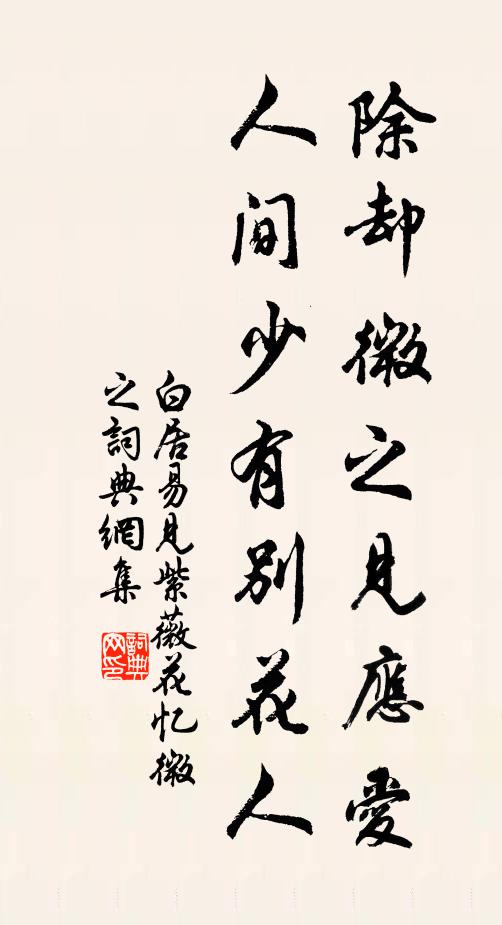 除却微之見應愛
人间少有别花人
白居易見紫薇花忆微
之詞典網集